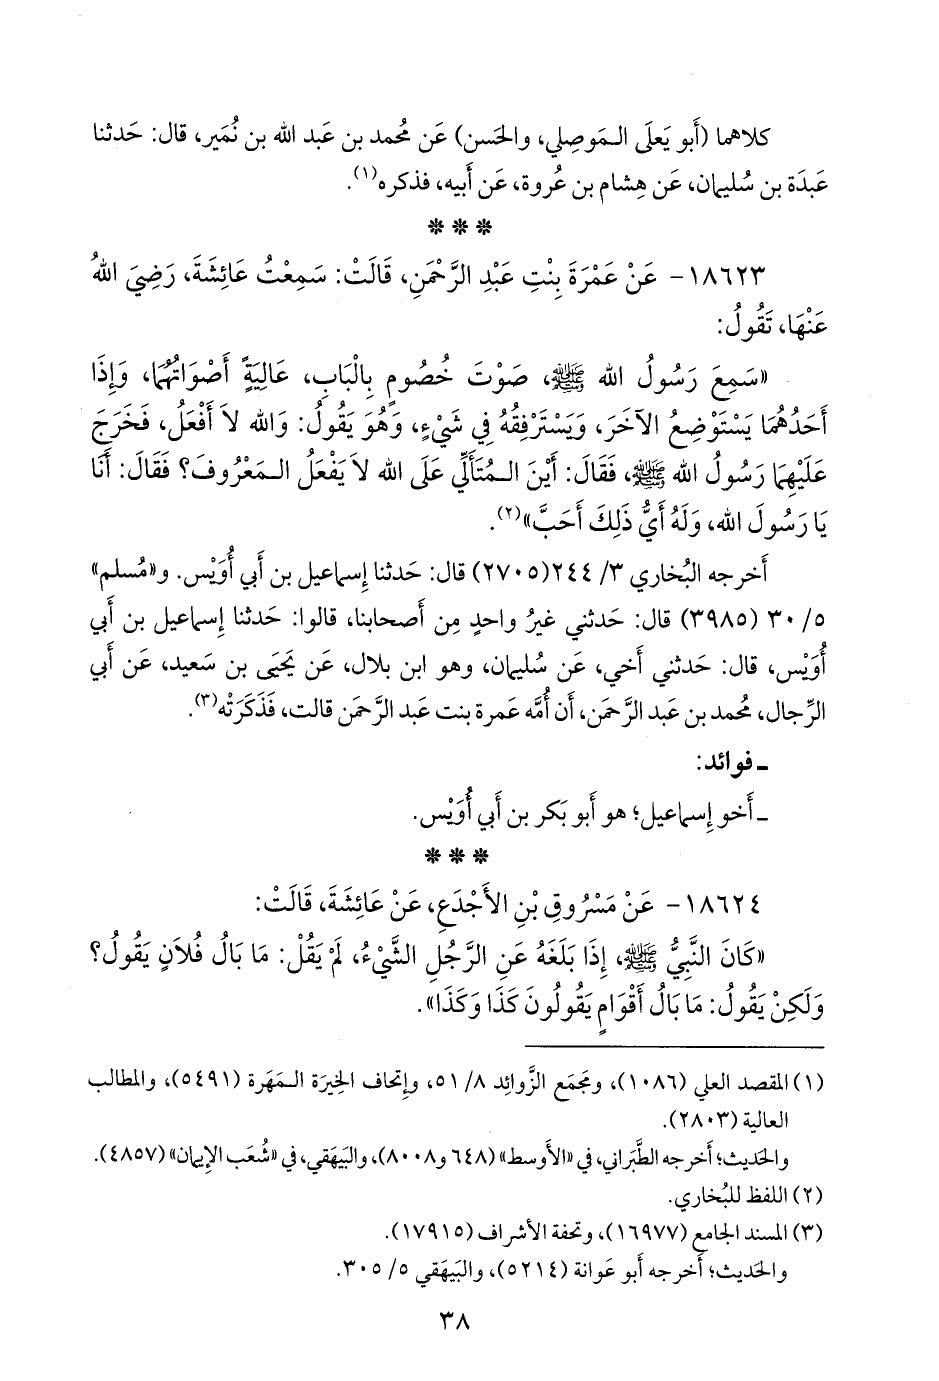 كلاهما (أَبو يَعلَى الـمَوصِلي، والحَسن) عَن مُحمد بن عَبد الله بن نُمَير، قال: حَدثنا
عَبدَة بن سُليمان، عَن هِشام بن عُروة، عَن أَبيه، فذكره(١).
* * *
١٨٦٢٣- عَنْ عَمْرَةَ بِنْتِ عَبْدِ الرَّحْمَنِ، قَالَتْ: سَمِعْتُ عَائِشَةَ، رَضِيَ اللهُ
عَنْهَا، تَقُولُ:
«سَمِعَ رَسُولُ الله ﷺ، صَوْتَ خُصُومٍ بِالْبَابِ، عَالِيَةً أَصْوَاتُهُمَا، وَإِذَا
أَحَدُهُمَا يَسْتَوْضِعُ الآخَرَ، وَيَسْتَرْفِقُهُ فِي شَيْءٍ، وَهُوَ يَقُولُ: وَالله لاَ أَفْعَلُ، فَخَرَجَ
عَلَيْهِمَا رَسُولُ الله ﷺ، فَقَالَ: أَيْنَ الـمُتَأَلِّي عَلَى الله لاَ يَفْعَلُ الـمَعْرُوفَ؟ فَقَالَ: أَنَا
يَا رَسُولَ الله، وَلَهُ أَيُّ ذَلِكَ أَحَبَّ»(٢).
أَخرجه البُخاري ٣/ ٢٤٤(٢٧٠٥) قال: حَدثنا إِسماعيل بن أَبي أُوَيْس. و«مُسلم»
٥/ ٣٠ (٣٩٨٥) قال: حَدثني غيرُ واحدٍ مِن أَصحابنا، قالوا: حَدثنا إِسماعيل بن أَبي
أُوَيْس، قال: حَدثني أَخي، عَن سُليمان، وهو ابن بلال، عَن يَحيَى بن سَعيد، عَن أَبي
الرِّجال، مُحمد بن عَبد الرَّحمَن، أَن أُمَّه عَمرة بنت عَبد الرَّحمَن قالت، فَذَكَرَتْه(٣).
ـ فوائد:
ـ أَخو إِسماعيل؛ هو أَبو بَكر بن أَبي أُوَيْس.
* * *
١٨٦٢٤- عَنْ مَسْرُوقِ بْنِ الأَجْدَعِ، عَنْ عَائِشَةَ، قَالَتْ:
«كَانَ النَّبِيُّ ﷺ، إِذَا بَلَغَهُ عَنِ الرَّجُلِ الشَّيْءُ، لَمْ يَقُلْ: مَا بَالُ فُلاَنٍ يَقُولُ؟
وَلَكِنْ يَقُولُ: مَا بَالُ أَقْوَامٍ يَقُولُونَ كَذَا وَكَذَا».
(١) المقصد العلي (١٠٨٦)، ومَجمَع الزَّوائد ٨/ ٥١، وإتحاف الخِيرَة الـمَهَرة (٥٤٩١)، والمطالب
العالية (٢٨٠٣).
والحَديث؛ أَخرجه الطَّبَراني، في «الأَوسط» (٦٤٨ و٨٠٠٨)، والبَيهَقي، في «شُعَب الإِيمان» (٤٨٥٧).
(٢) اللفظ للبُخاري.
(٣) المسند الجامع (١٦٩٧٧)، وتحفة الأشراف (١٧٩١٥).
والحَديث؛ أَخرجه أَبو عَوانة (٥٢١٤)، والبَيهَقي ٥/ ٣٠٥.
٣٨